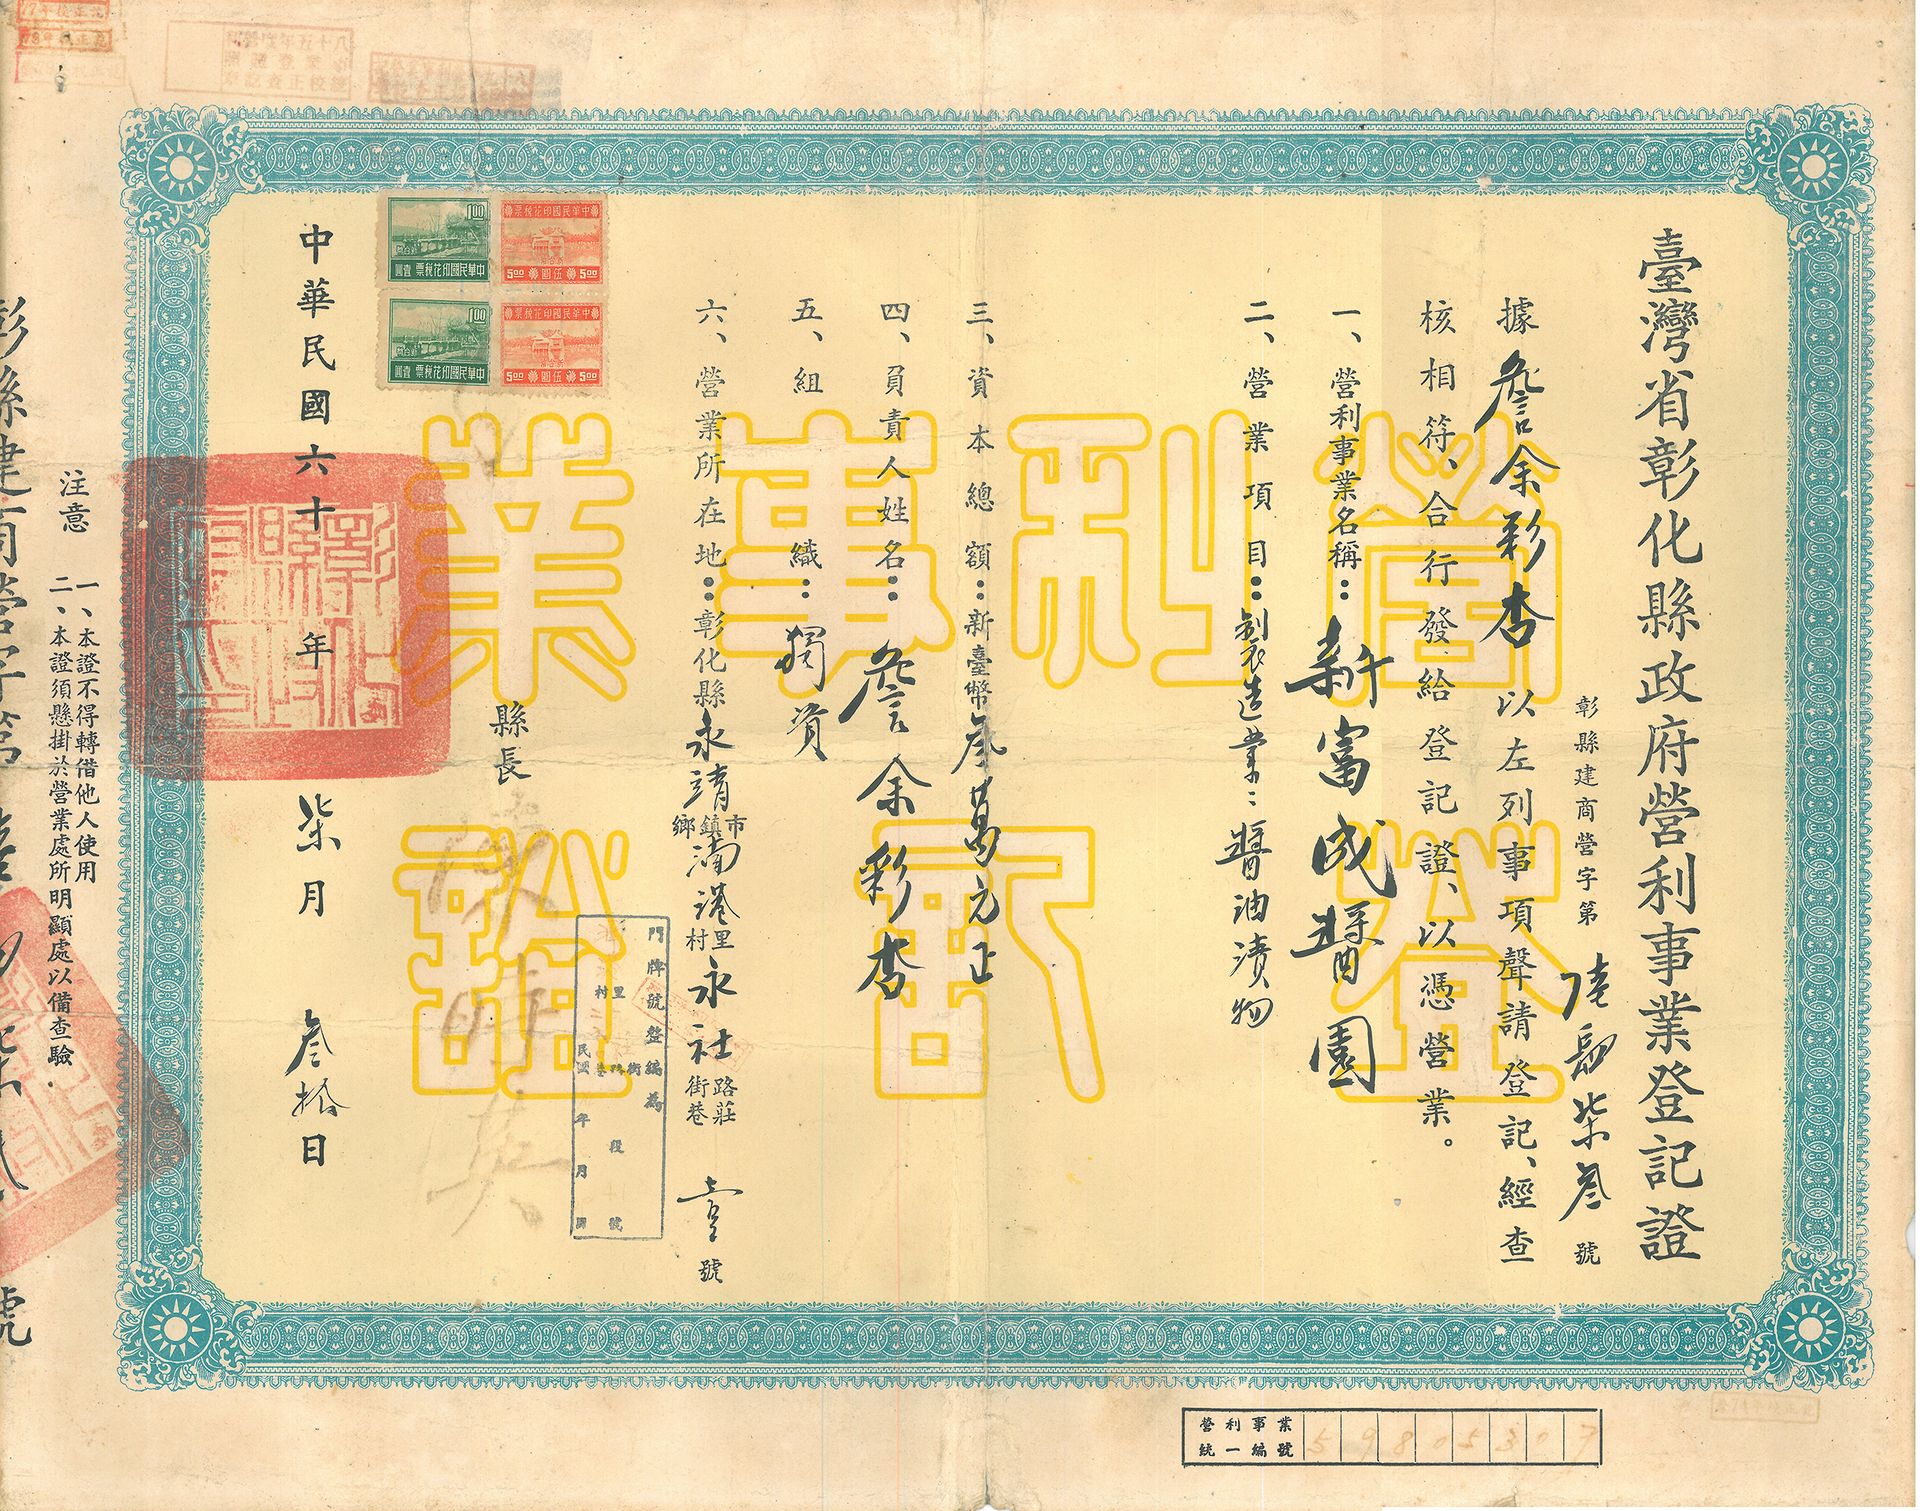 臺灣省彰化縣政府營利事業登記證
彰縣建商營字第 陸郧柒叁 號
據 詹余彩杏 以左列事項聲請登記、經查
核相符、合行發給登記證、以憑營業。
一、營利事業名稱：新富成醬園
二、營業項目：製造業：醬油漬物
三、資本總額：新臺幣叁萬元正
四、負責人姓名：詹余彩杏
五、組織：獨資
六、營業所在地：彰化縣永靖鄉鎮市湳港村里永社路莊街巷壹號
門牌號整編為
村里
街路巷段號
民國 年 月
縣長
中華民國六十年柒月叁拾日
營利事業
登記證
彰化縣政府印
中華民國印花稅票
伍圓
5.00
5.00
中華民國印花稅票
伍圓
5.00
5.00
1.00
中華民國印花稅票
壹圓
1.00
中華民國印花稅票
壹圓
注意
一、本證不得轉借他人使用
二、本證須懸掛於營業處所明顯處以備查驗．
彰縣建商營字第
號
營利事業
統一編號
59805307